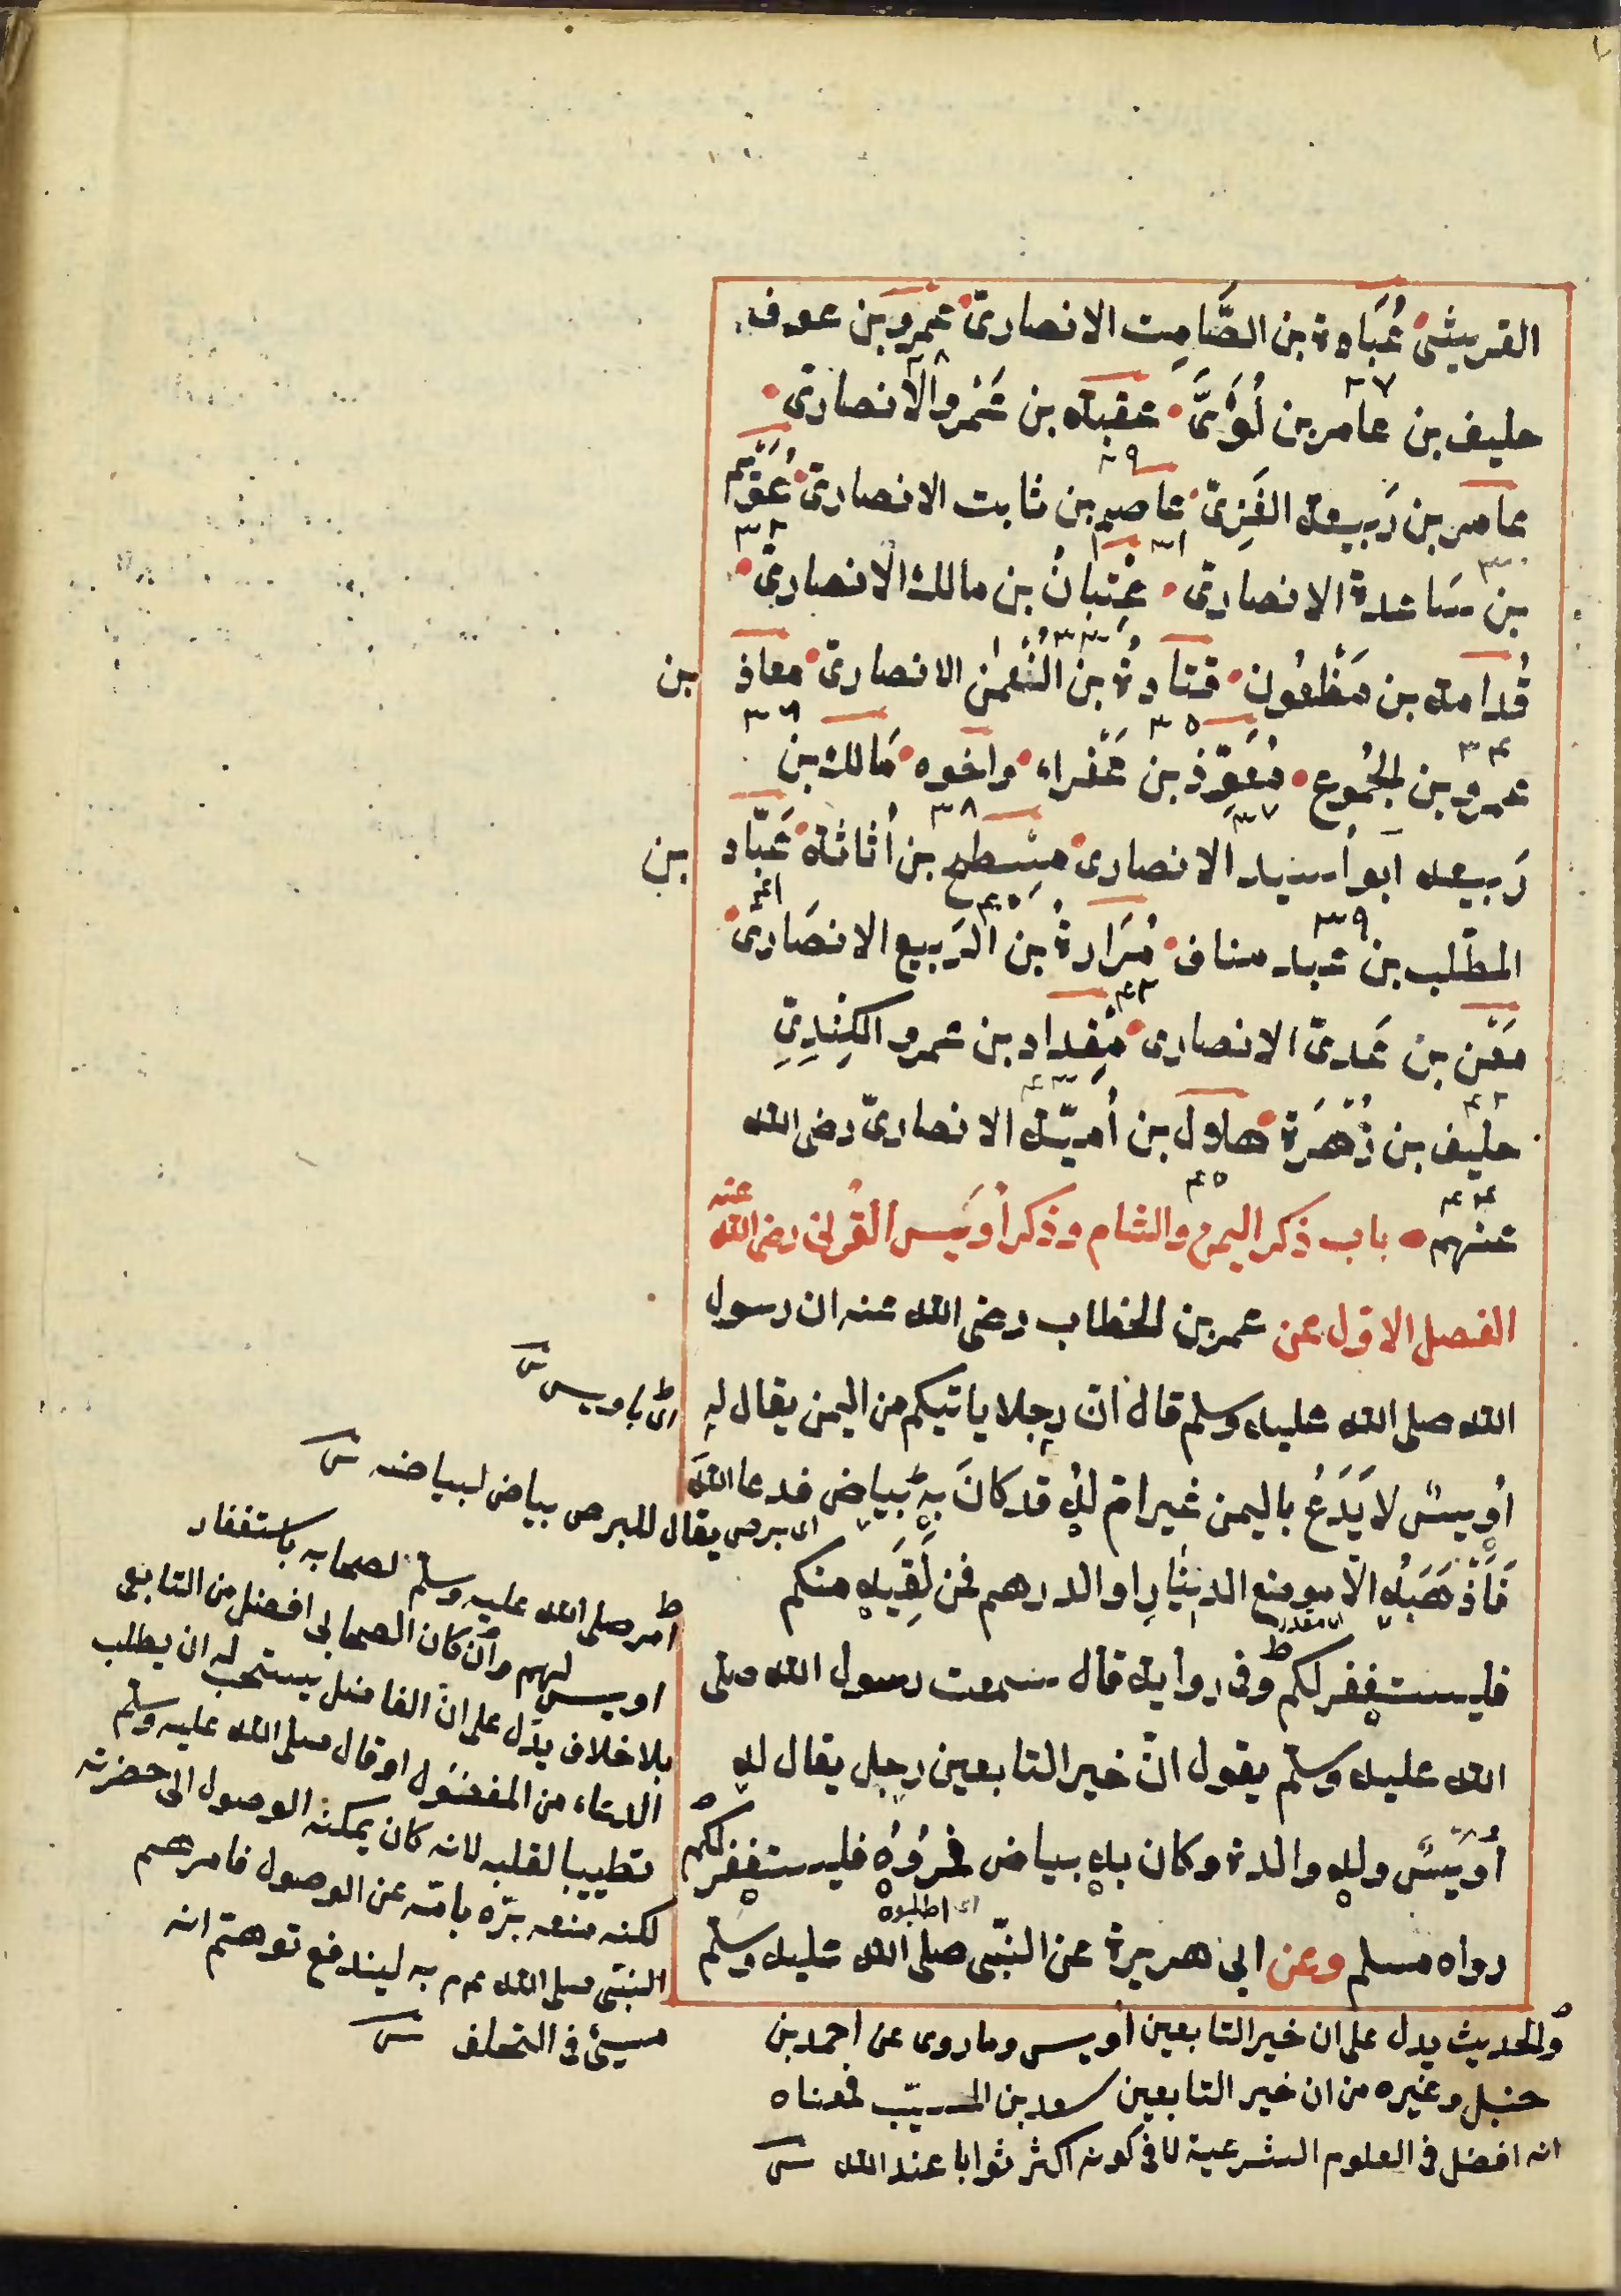 القريشى عُبَادة بن الصَّامِت الانصارىّ عَمرو بن عوف
٢٧ ٢٨
حليف بن عامر بن لُؤَىّ عقبة بن عَمْرو الانصارىّ
٢٩
عامر بن رَبيعة العَنزىّ عاصم بن ثابت الانصارىّ عُوَيم
٣٠ ٣١ ٣٢
بن سَاعدة الانصارىّ عِتبانُ بن مالك الانصارىّ
٣٣
قُدامة بن مَظْعُون قتادةُ بن النُعمٰن الانصارىّ معاذ بن
٣٤ ٣٥ ٣٦
عمرو بن الجُمُوع مُعَوِّذ بن عَفْراء واخوه مَالك بن
٣٧ ٣٨
رَبيعة ابو اُسَيد الانصارى مِسْطح بن اُثاثة عَبّاد بن
٣٩ ٤٠ ٤١
المطّلب بن عبد مناف مُرَارةُ بن الرَبيع الانصَارىّ
٤٢
مَعْن بن عَدىّ الانصارى مِقداد بن عمرو الكِنْدِىّ
٤٢ ٤٣
حليف بن زُهْرَة هلال بن اُميّة الانصارىّ رضى الله
٤٤ ٤٥
عنهم باب ذكر اليمن والشام وذكر اُوَيس القُرنى رضى الله عنه
الفصل الاوّل عن عمر بن الخطاب رضى الله عنه ان رسول
الله صلى الله عليه وسلم قال انّ رجلا ياتيكم من اليمن يقال له
اُويسٌ لا يَدَعُ باليمن غير امّ له قد كانَ به بياض فدعا اللهَ
فَاَذْهَبَهُ الّا موضع الدينارِ او الدرهم فمن لَقِيَه منكم
فليستغفر لكم وفى رواية قال سمعت رسول الله صلى
الله عليه وسلم يقول انّ خير التابعين رجل يقال له
اُوَيْسٌ وله والدة وكان به بياض فمُرُوْه فليستغفر لكم
اى اطلبوه
رواه مسلم وعن ابى هريرة عن النبّى صلى الله عليه وسلم
اى باويس
اى برص يقال للبرص بياض لبياضه
امر صلى الله عليه وسلم لصحابه باستغفار
اويس لهم وان كان الصحابى افضل من التابعى
بلا خلاف يدل على ان الفاضل يستحب له ان يطلب
الدعاء من المفضول او قال صلى الله عليه وسلم
تطييبا لقلبه لانه كان يمكنه الوصول الى حضرته
لكنه منعه برّه بامّه عن الوصول فامرهم
النبّى صلى الله عم به ليندفع توهّم انه
مسيئ فى التخلف
والحديث يدل على ان خير التابعين اُويس وما روى عن احمد بن
حنبل وغيره من ان خير التابعين سعد بن المسيّب فمعناه
انه افضل فى العلوم الشرعية لا فى كونه اكثر ثوابا عند الله